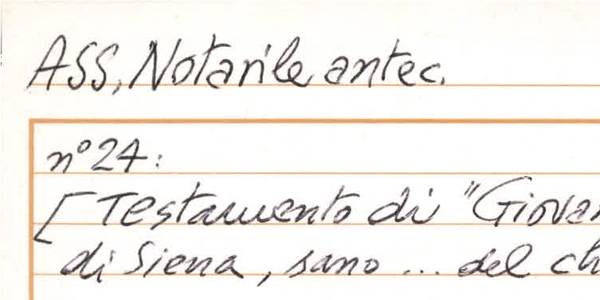 ASS, Notarile antec.
n° 24:
[Testamento di "Giova
di Siena, sano ... del ch